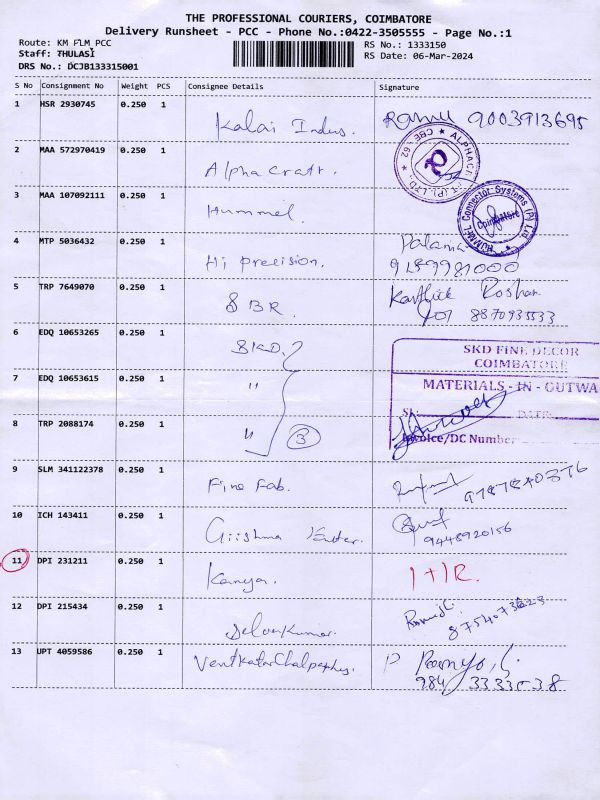 THE PROFESSIONAL COURIERS, COIMBATORE
Delivery Runsheet - PCC - Phone No.:0422-3505555 - Page No.:1
Route: KM FLM PCC
Staff: THULASI
DRS No.: DCJB133315001
RS No.: 1333150
RS Date: 06-Mar-2024
S No Consignment No Weight PCS Consignee Details Signature
1 HSR 2930745 0.250 1 Kalai Indus. 9003913695
2 MAA 572970419 0.250 1 Alpha craft.
3 MAA 107092111 0.250 1 Hummel
HUMMEL Connector Systems (P) Ltd
Coimbatore
4 MTP 5036432 0.250 1 Hi precision.
5 TRP 7649070 0.250 1 SBR Karthick Roshan
8870935533
6 EDQ 10653265 0.250 1 SKD
SKD FINE DECOR
COIMBATORE
7 EDQ 10653615 0.250 1 "
MATERIALS - IN - OUTWA
8 TRP 2088174 0.250 1 " 3
DATE:
Invoice/DC Number
9 SLM 341122378 0.250 1 Fine Fab.
10 ICH 143411 0.250 1 9448920156
11 DPI 231211 0.250 1 Kanya.
12 DPI 215434 0.250 1 SelvaKumar.
13 UPT 4059586 0.250 1